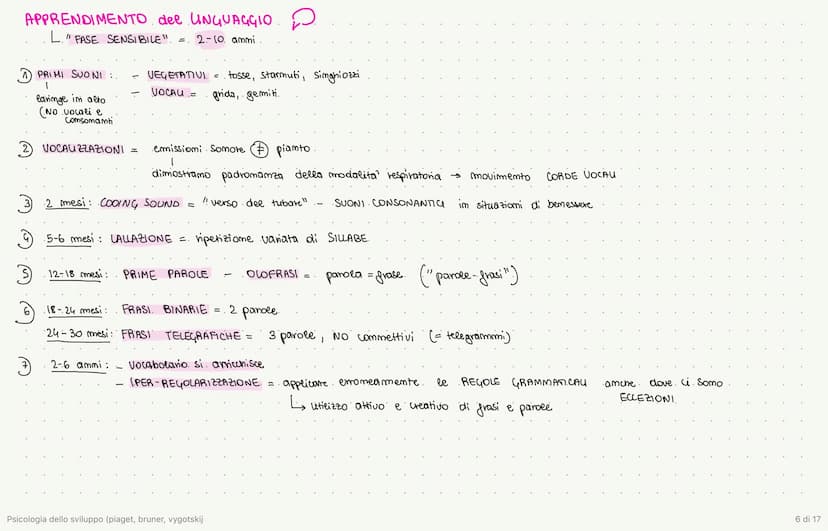 APPRENDIMENTO del LINGUAGGIO
"FASE SENSIBILE" = 2-10 anni
1) PRIMI SUONI: - VEGETATIVI = tosse, starnuti, singhiozzi
- VOCALI = grida, gemiti
laringe in alto
(NO vocali e
consonanti
2) VOCALIZZAZIONI = emissioni sonore ≠ pianto
dimostrano padronanza della modalità respiratoria → movimento CORDE VOCALI
3) 2 mesi: COOING SOUND = "verso del tubare" - SUONI CONSONANTICI in situazioni di benessere
4) 5-6 mesi: LALLAZIONE = ripetizione variata di SILLABE
5) 12-18 mesi: PRIME PAROLE - OLOFRASI = parola = frase ("parole-frasi")
6) 18-24 mesi: FRASI BINARIE = 2 parole
24-30 mesi: FRASI TELEGRAFICHE = 3 parole, NO connettivi (= telegrammi)
7) 2-6 anni: - Vocabolario si arricchisce
- IPER-REGOLARIZZAZIONE = applicare erroneamente le REGOLE GRAMMATICALI anche dove ci sono
ECCEZIONI
↳ utilizzo attivo e creativo di frasi e parole
Psicologia dello sviluppo (piaget, bruner, vygotskij
6 di 17